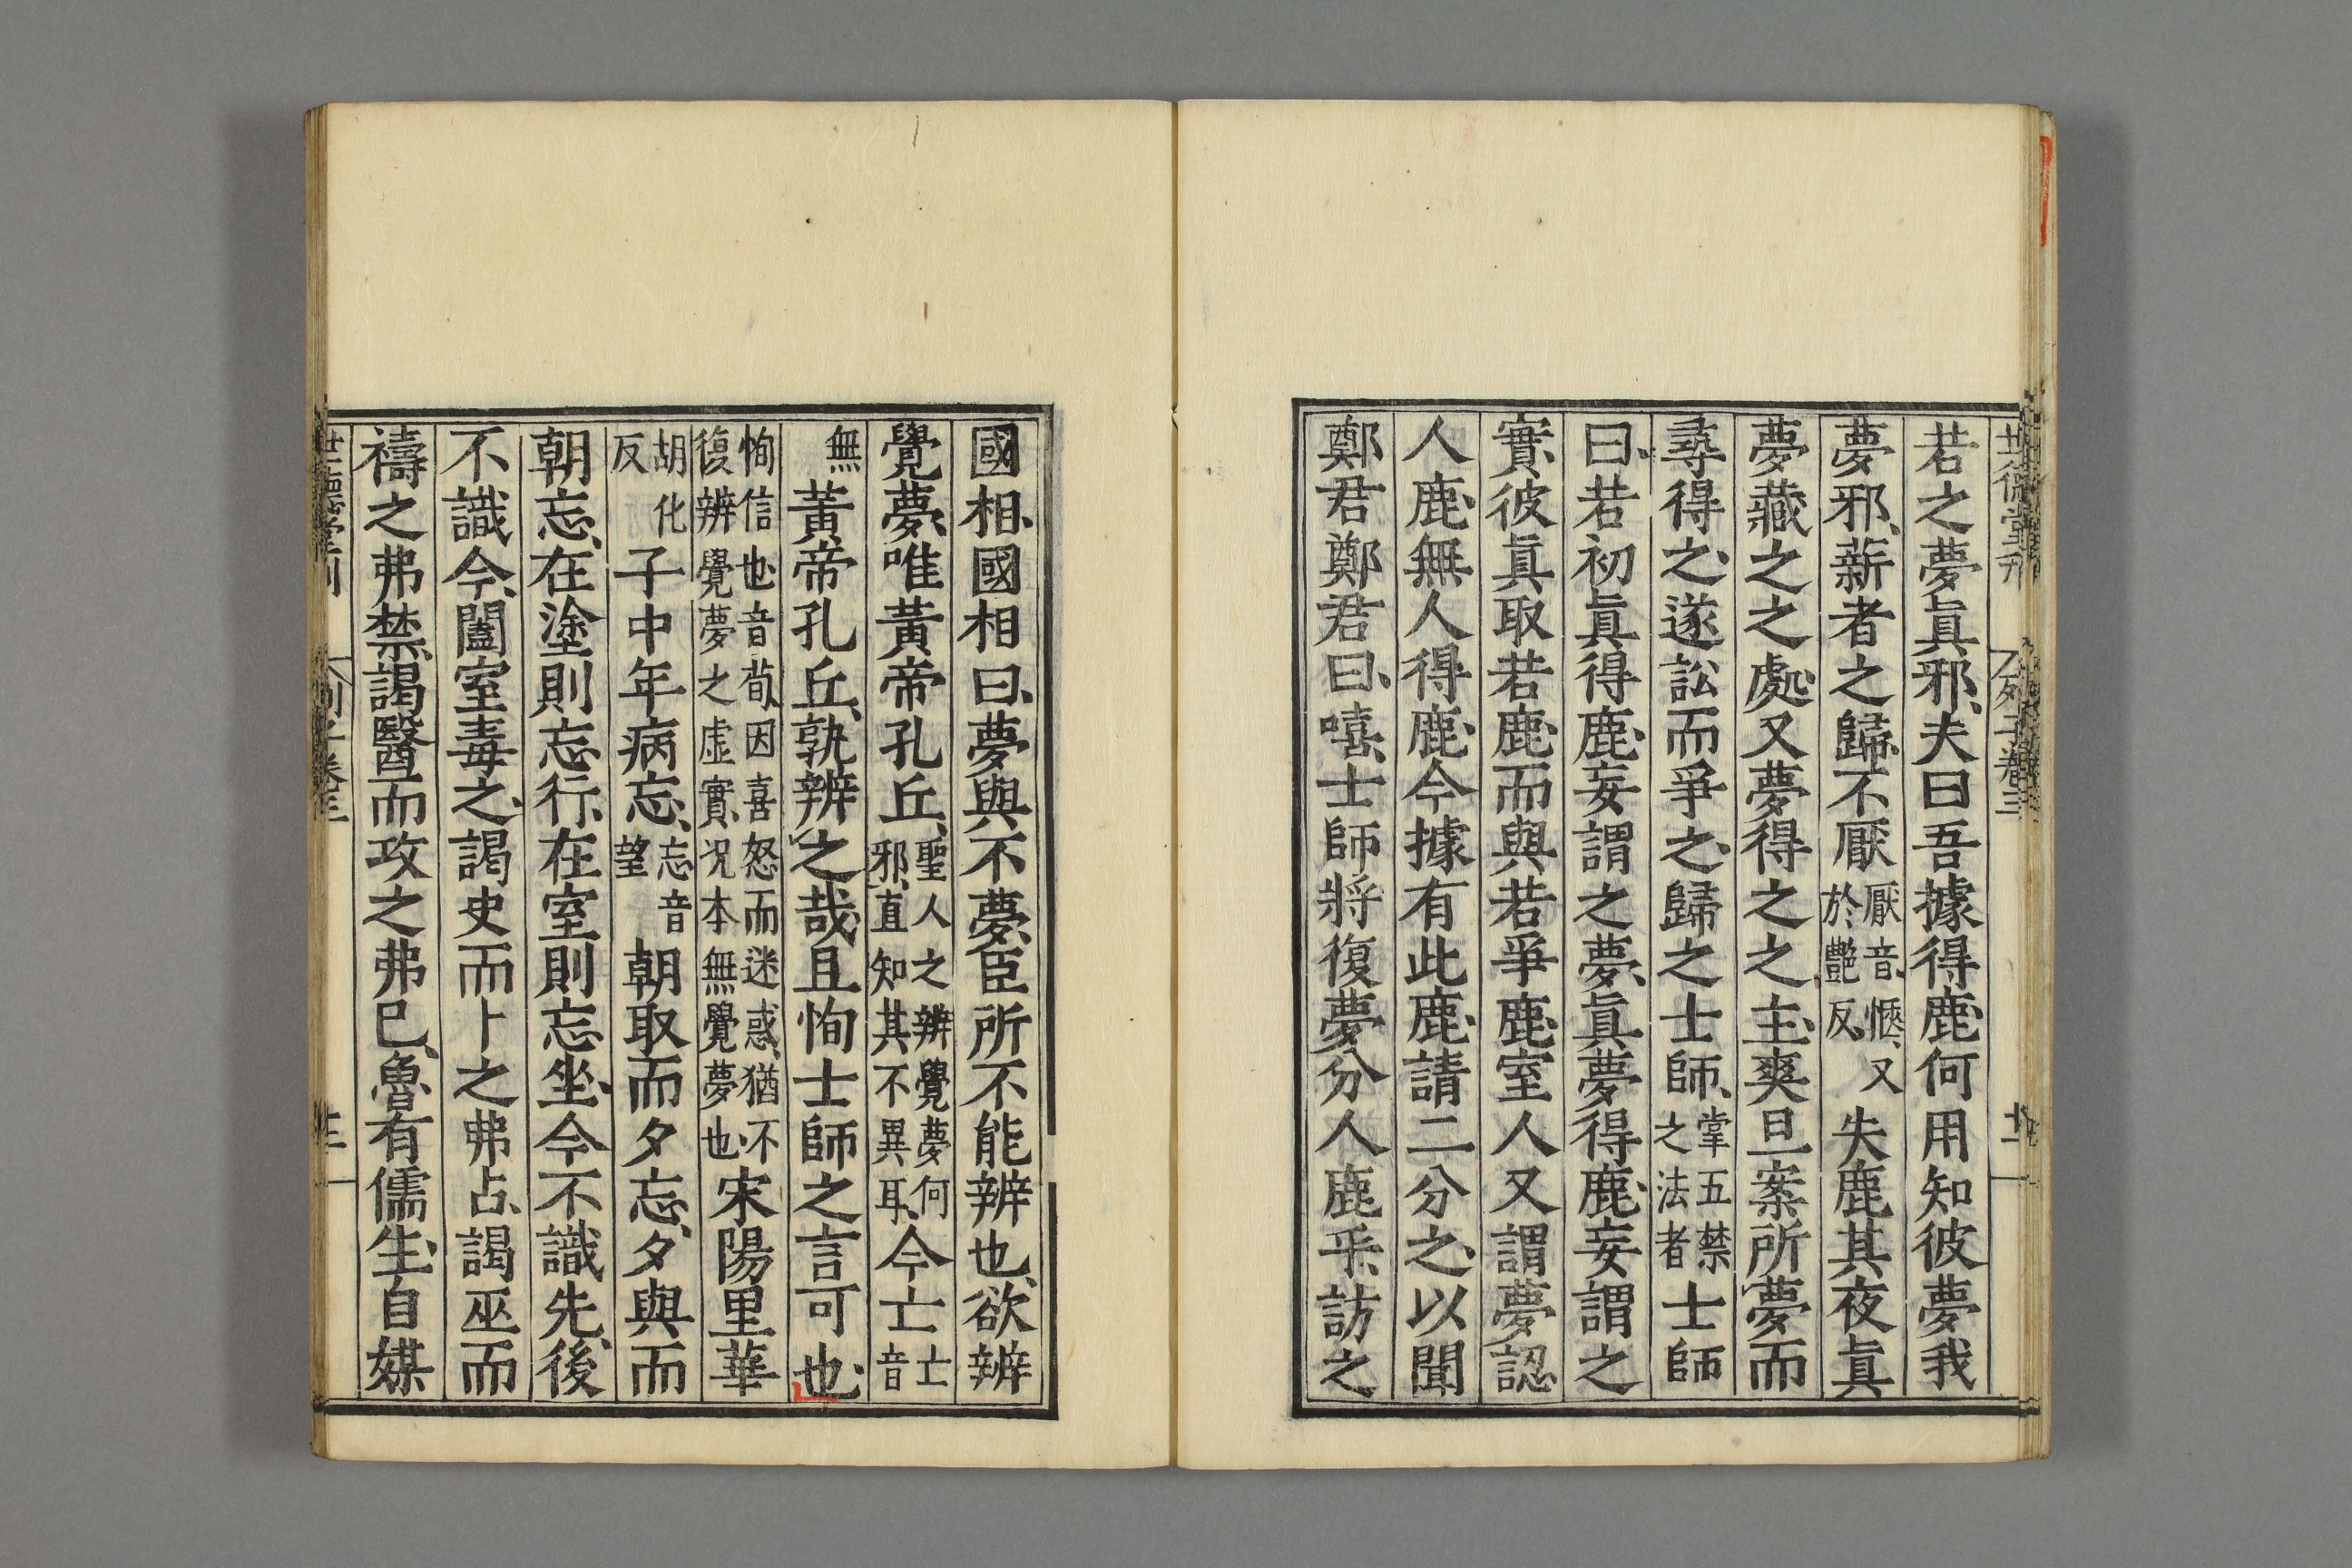 世德堂刊 列子卷三 十二
若之夢眞邪、夫曰吾據得鹿、何用知彼夢我
夢邪、薪者之歸、不厭厭音、愜、又於艷反、失鹿其夜眞
夢藏之之處、又夢得之之主、爽旦案所夢而
尋得之、遂訟而爭之、歸之士師、掌五禁之法者士師
曰、若初眞得鹿、妄謂之夢、眞夢得鹿、妄謂之
實、彼眞取若鹿、而與若爭鹿、室人又謂夢認
人鹿、無人得鹿、今據有此鹿、請二分之、以聞
鄭君鄭君曰、嘻、士師將復夢分人鹿乎、訪之
國相、國相曰、夢與不夢、臣所不能辨也、欲辨
覺夢、唯黃帝孔丘、聖人之辨覺夢何邪、直知其不異耳、今亡亡音
無黃帝孔丘、孰辨之哉、且恂士師之言可也、
恂信也、音荀、因喜怒而迷惑、猶不復辨覺夢之虛實、况本無覺夢也、宋陽里華
胡化反子中年病忘、忘音望朝取而夕忘、夕與而
朝忘、在塗則忘行、在室則忘坐、今不識先、後
不識今、闔室毒之、謁史而卜之弗占、謁巫而
禱之弗禁、謁醫而攻之弗已、魯有儒生、自媒